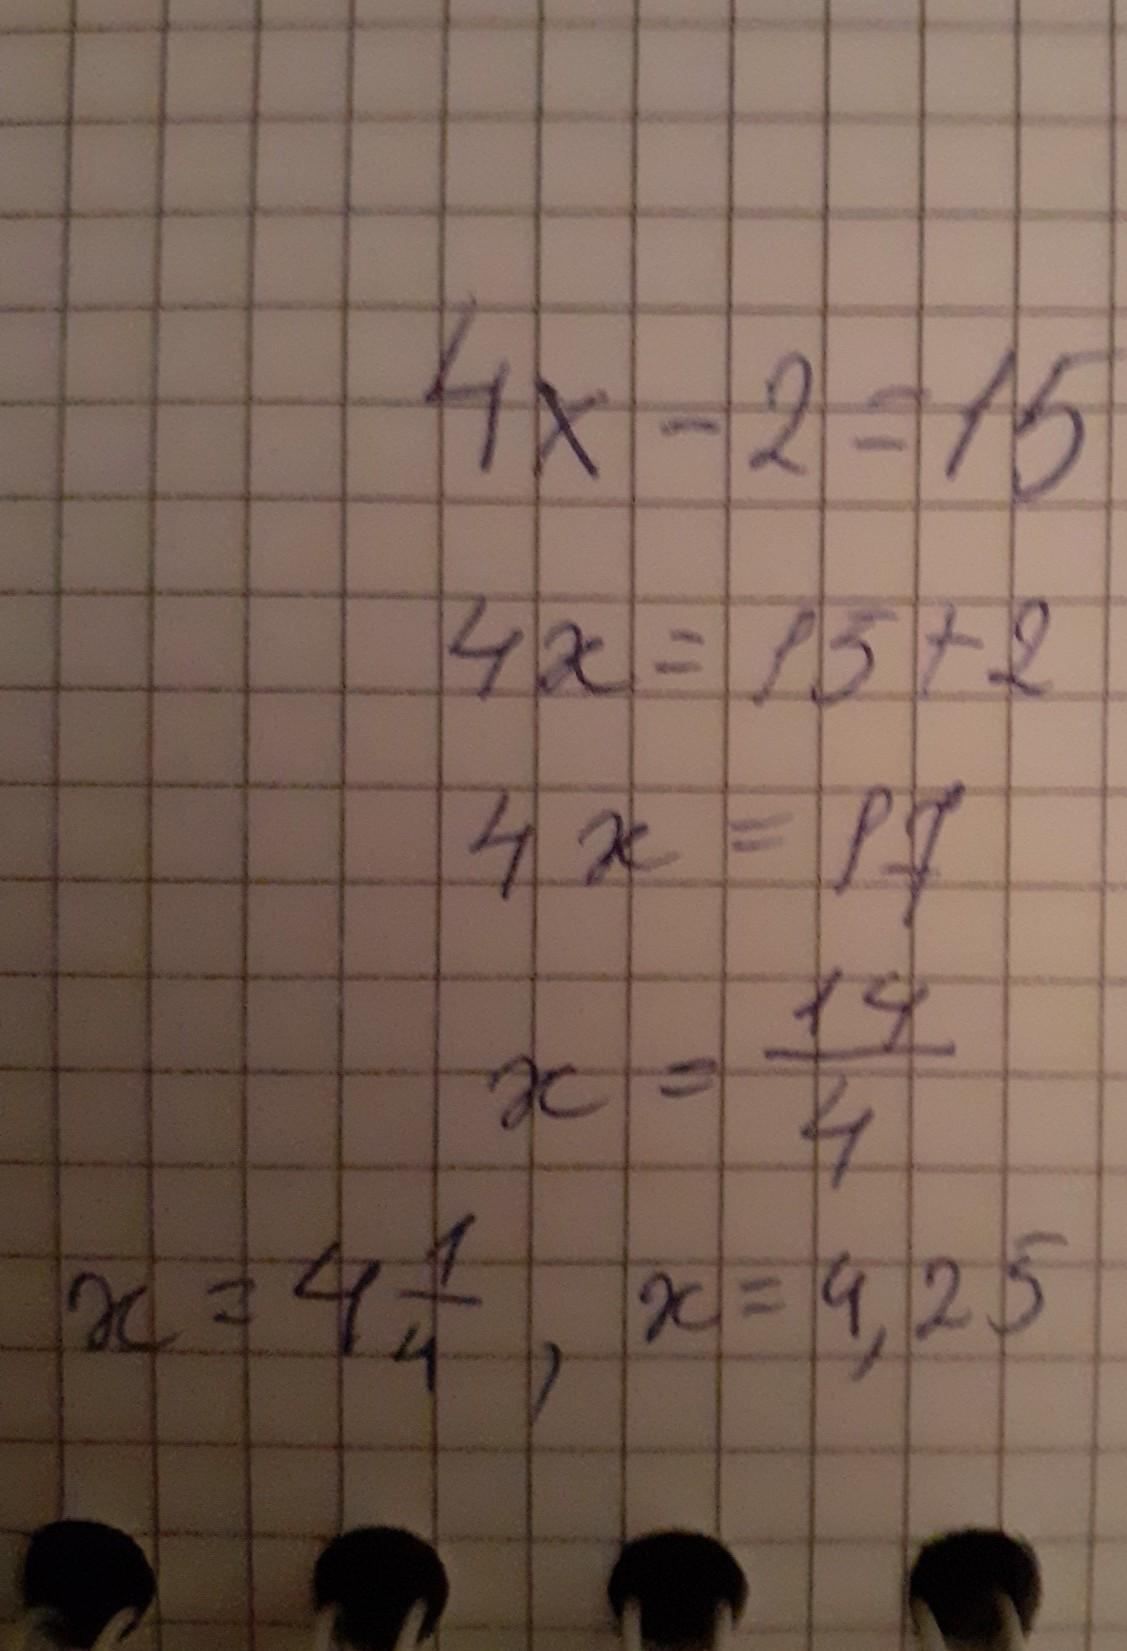 4x - 2 = 15
4x = 15 + 2
4x = 17
x = 17/4
x = 4 1/4, x = 4,25